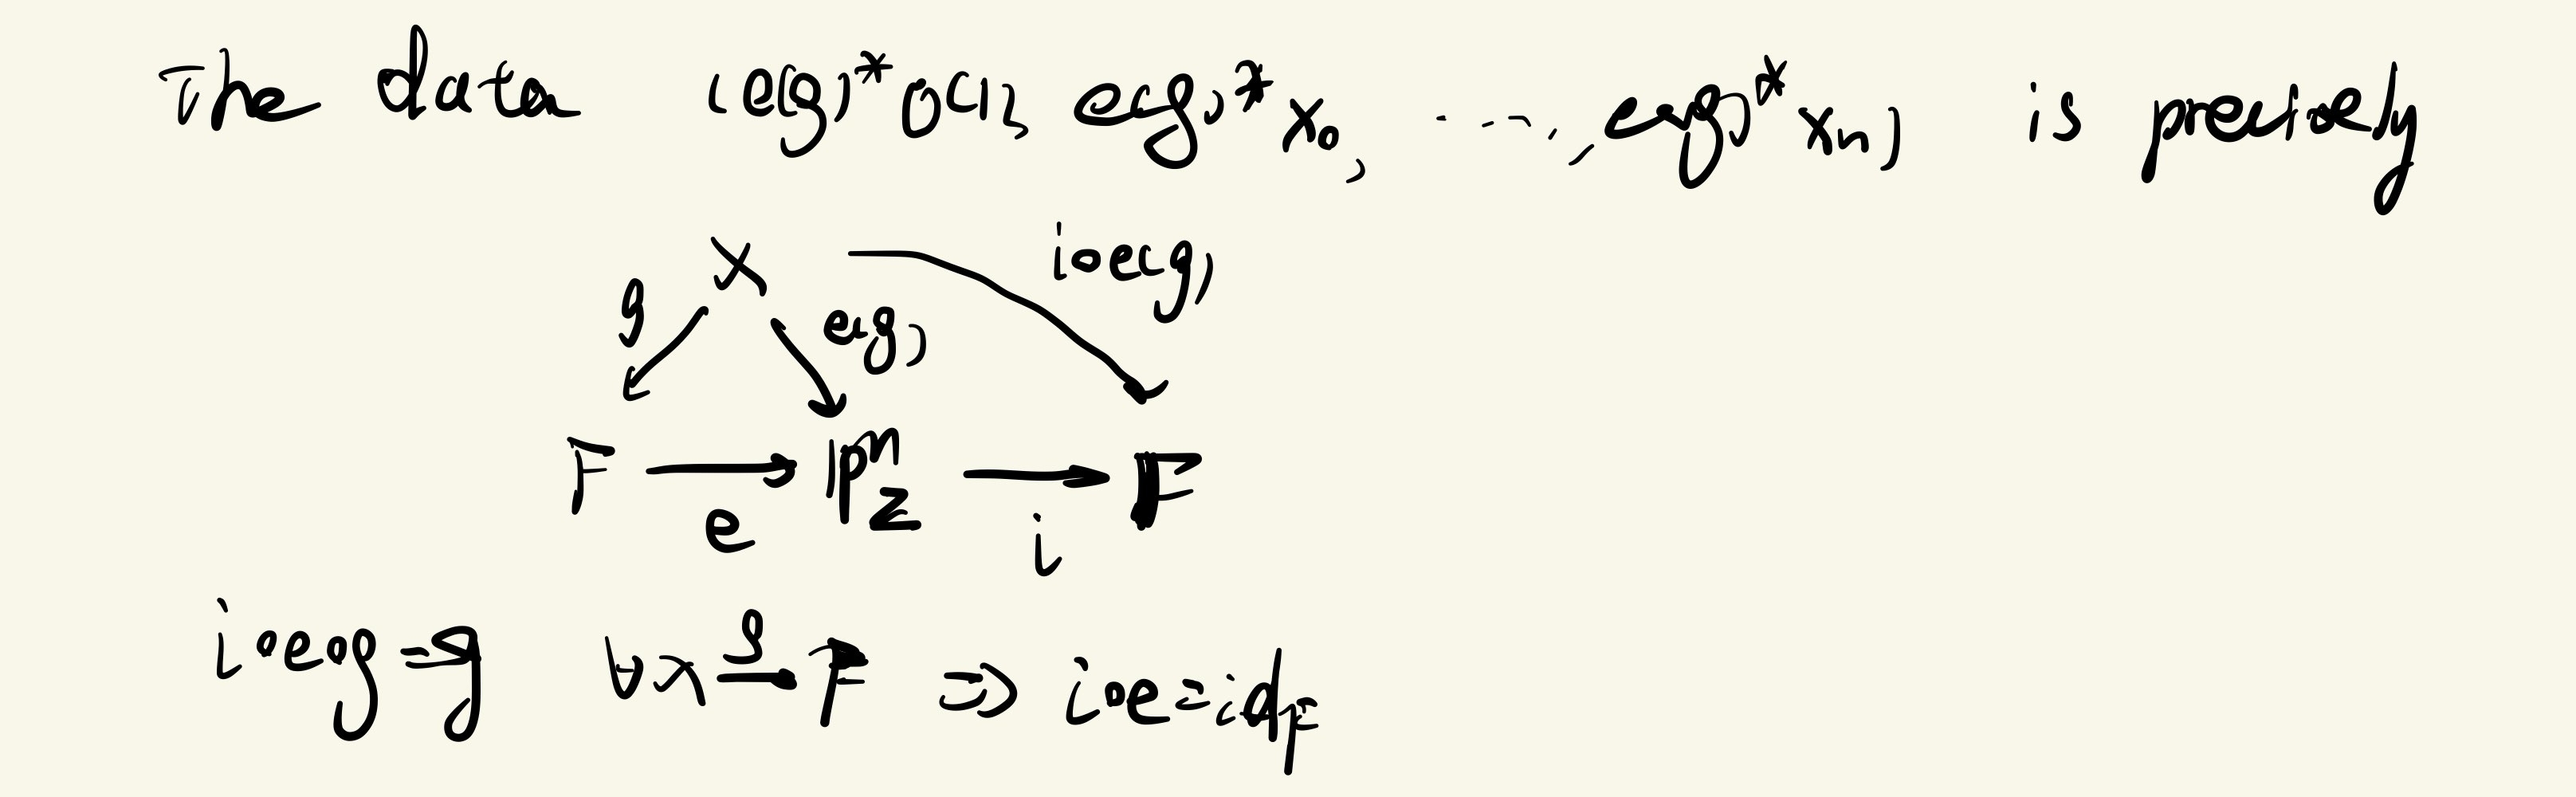 The data (e(g)*O(1), e(g)*x₀, ....., e(g)*xₙ) is precisely
X i∘e(g)
g e(g)
F → ℙⁿ_Z → F
e i
i∘e∘g = g ∀ X →^g F ⇒ i∘e = id_F